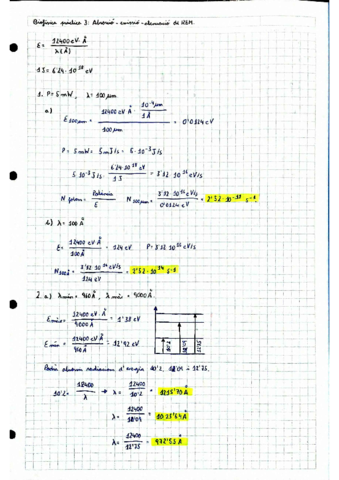 Biofísica pràctica 3: Absorció - emissió - atenuació de REM.
E = 12400 eV·Å / λ(Å)
1 J = 6'24·10^18 eV
1. P = 5 mW, λ = 100 μm
a)
E 100μm = 12400 eV·Å · 10^-4 μm / 1 Å / 100 μm = 0'0124 eV
P = 5 mW = 5 mJ/s = 5·10^-3 J/s
5·10^-3 J/s · 6'24·10^18 eV / 1 J = 3'12·10^16 eV/s
N fotons = Potència / E N 100μm = 3'12·10^16 eV/s / 0'0124 eV = 2'52·10^18 s^-1
b) λ = 100 Å
E = 12400 eV Å / 100 Å = 124 eV P = 3'12·10^16 eV/s
N 100Å = 3'12·10^16 eV/s / 124 eV = 2'52·10^14 s^-1
2. a) λmin = 960 Å, λmàx = 9000 Å
Emín = 12400 eV·Å / 9000 Å = 1'38 eV
Emàx = 12400 eV·Å / 960 Å = 12'92 eV
Podrà absorbir radiacions d'energia 10'2, 12'09 i 12'75.
10'2 = 12400 / λ → λ = 12400 / 10'2 = 1215'70 Å
λ = 12400 / 12'09 = 1025'64 Å
λ = 12400 / 12'75 = 972'55 Å